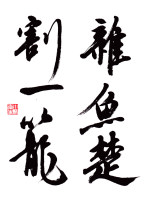 雜魚楚
割一籠